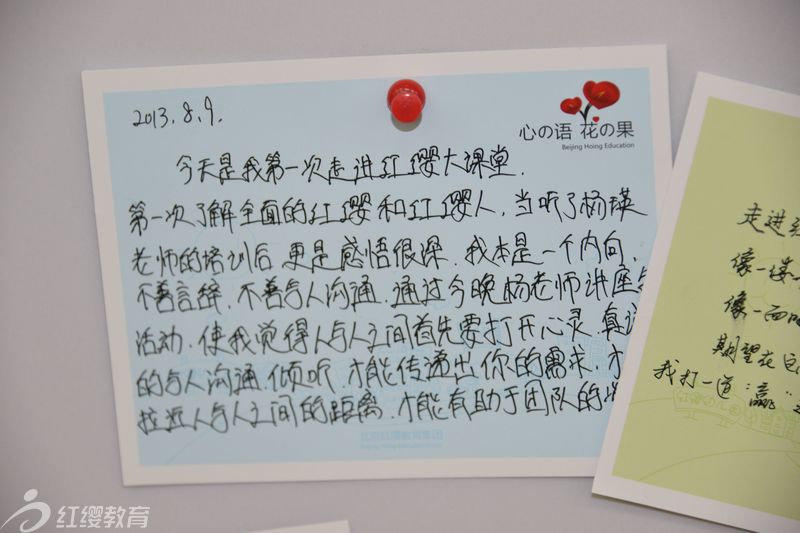 2013.8.9.
心の语 花の果
Beijing Hoing Education
今天是我第一次走进红缨大课堂.
第一次了解全面的红缨和红缨人,当听了杨瑛
老师的培训后 更是感悟很深.我本是一个内向,
不善言辞.不善与人沟通.通过今晚杨老师讲座与
活动.使我觉得人与人之间首先要打开心灵.真
的与人沟通.倾听.才能传递出你的需求.才
拉近人与人之间的距离.才能有助于团队的
北京红缨教育集团
走进
像一
像一面
期望花
我打一道"赢"
红缨教育